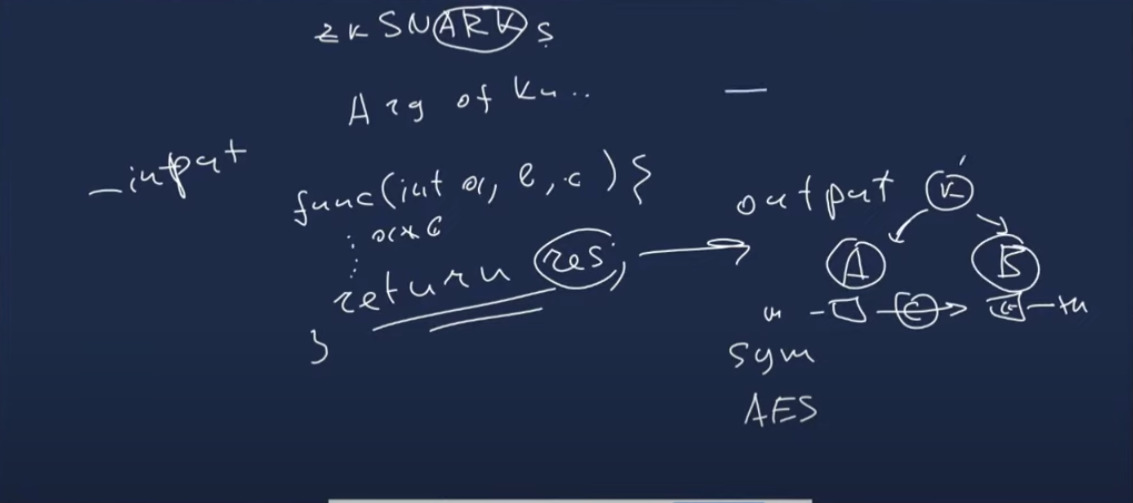 zk SNARKs
Arg of Kn..
input
func(int a, b, c) {
return res;
}
output
K
A
B
m
C
Sym
AES